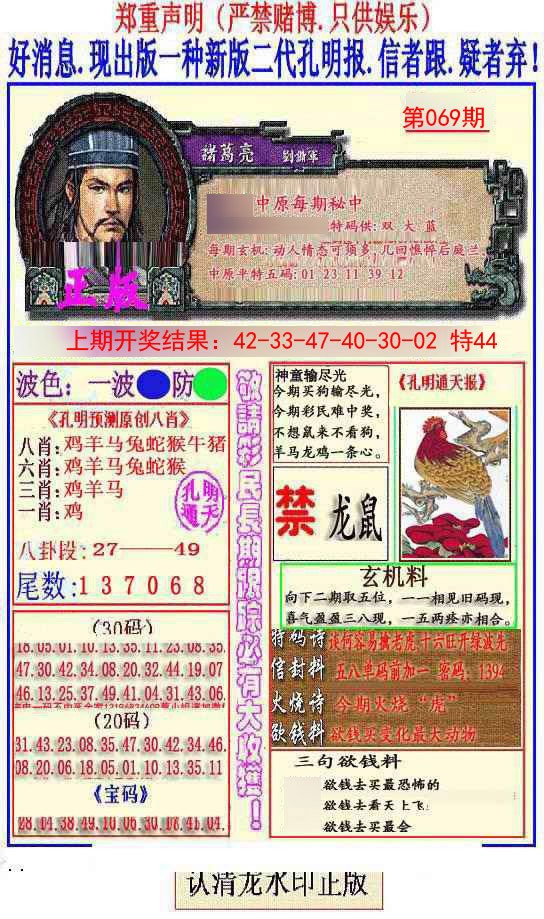 郑重声明（严禁赌博.只供娱乐）
好消息.现出版一种新版二代孔明报.信者跟.疑者弃!
第069期
諸葛亮 劉鐤軍
中原每期秘中
特码供: 双 大 蓝
每期玄机: 动人情态可须多, 几回憔悴后庭兰
中原平特五码: 01 23 11 39 12
正版
上期开奖结果：42-33-47-40-30-02 特44
波色：一波 防
《孔明预测原创八肖》
八肖: 鸡羊马兔蛇猴牛猪
六肖: 鸡羊马兔蛇猴
三肖: 鸡羊马
一肖: 鸡
孔明
通天
八卦段: 27——49
尾数: 1 3 7 0 6 8
(30码)
18.05.01.10.13.35.11.23.08.35.
47.30.42.34.08.20.32.44.19.07
46.13.25.37.49.41.04.31.43.06.
(20码)
31.43.23.08.35.47.30.42.34.46.
08.20.06.18.05.01.10.13.35.11
《宝码》
28.04.38.49.10.06.30.07.41.04.
敬請彩民長期跟踪必有大收獲！
神童输尽光
今期买狗输尽光，
今期彩民难中奖，
不想鼠来不看狗，
羊马龙鸡一条心。
《孔明通天报》
禁 龙鼠
玄机料
向下二期取五位，一一相见旧码现，
喜气盈盈三八现，一五两痊亦相合。
特码诗 谈何容易擒老虎 十六旺开绿波先
信封料 五八单码前加一 密码: 1394
火烧诗 今期火烧“虎”
欲钱料 欲钱买变化最大动物
三句欲钱料
欲钱去买最恐怖的
欲钱去看天上飞
欲钱去买最会
认清龙水印正版